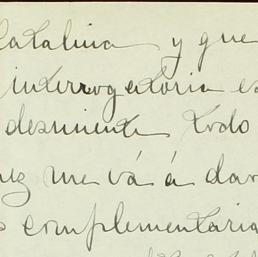 Catalina y que
interrogatoria es
desmiente todo
me vá á dar
complementaria